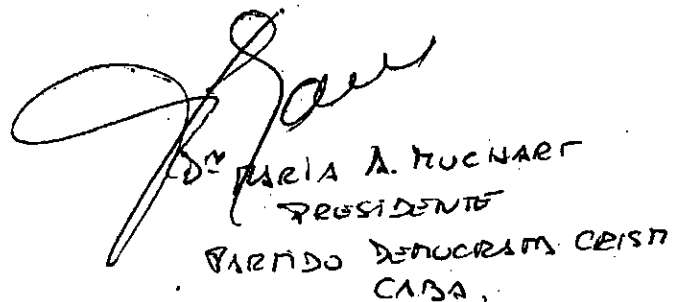 Dra MARÍA A. MUCHART
PRESIDENTE
PARTIDO DEMOCRATA CRISTI
CABA.